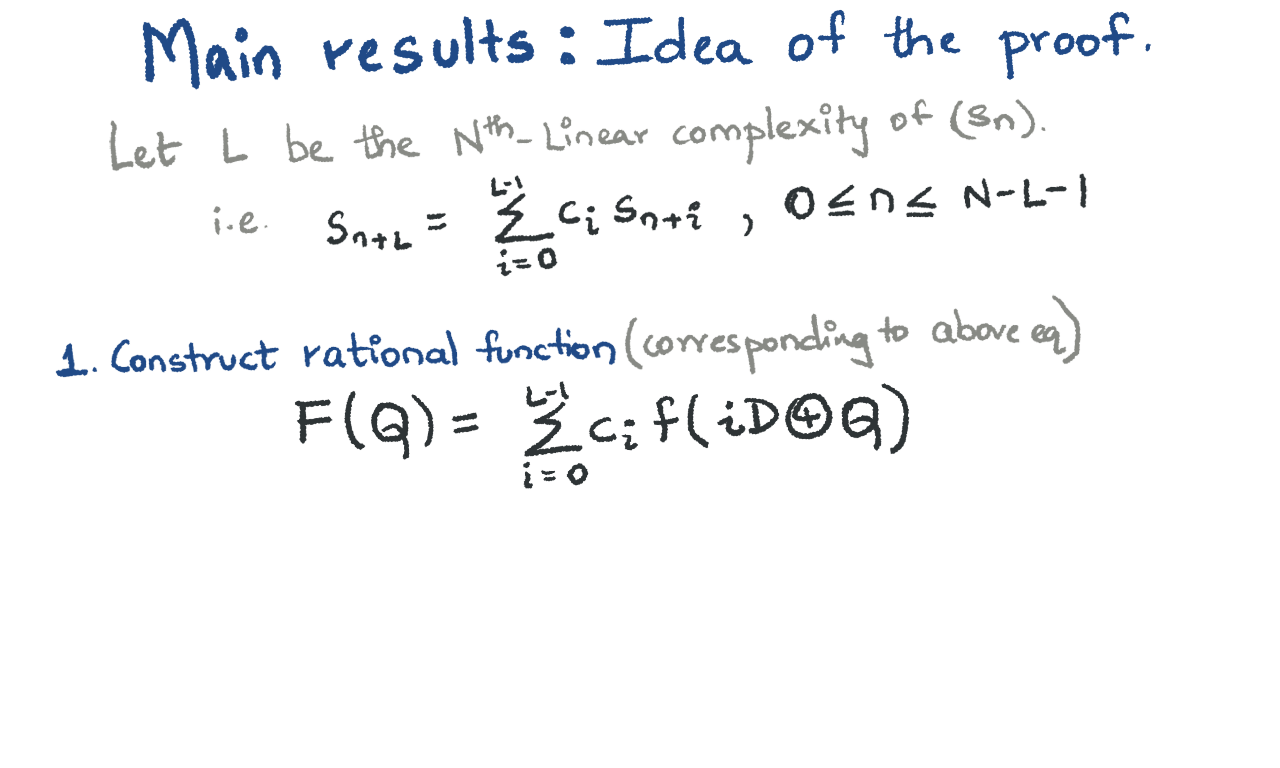 Main results: Idea of the proof.
Let L be the Nᵗʰ-Linear complexity of (Sn).
i.e. Sₙ₊L = ∑_{i=0}^{L-1} cᵢ Sₙ₊ᵢ , 0 ≤ n ≤ N-L-1
1. Construct rational function (corresponding to above eq)
F(Q) = ∑_{i=0}^{L-1} cᵢ f(iD⊕Q)